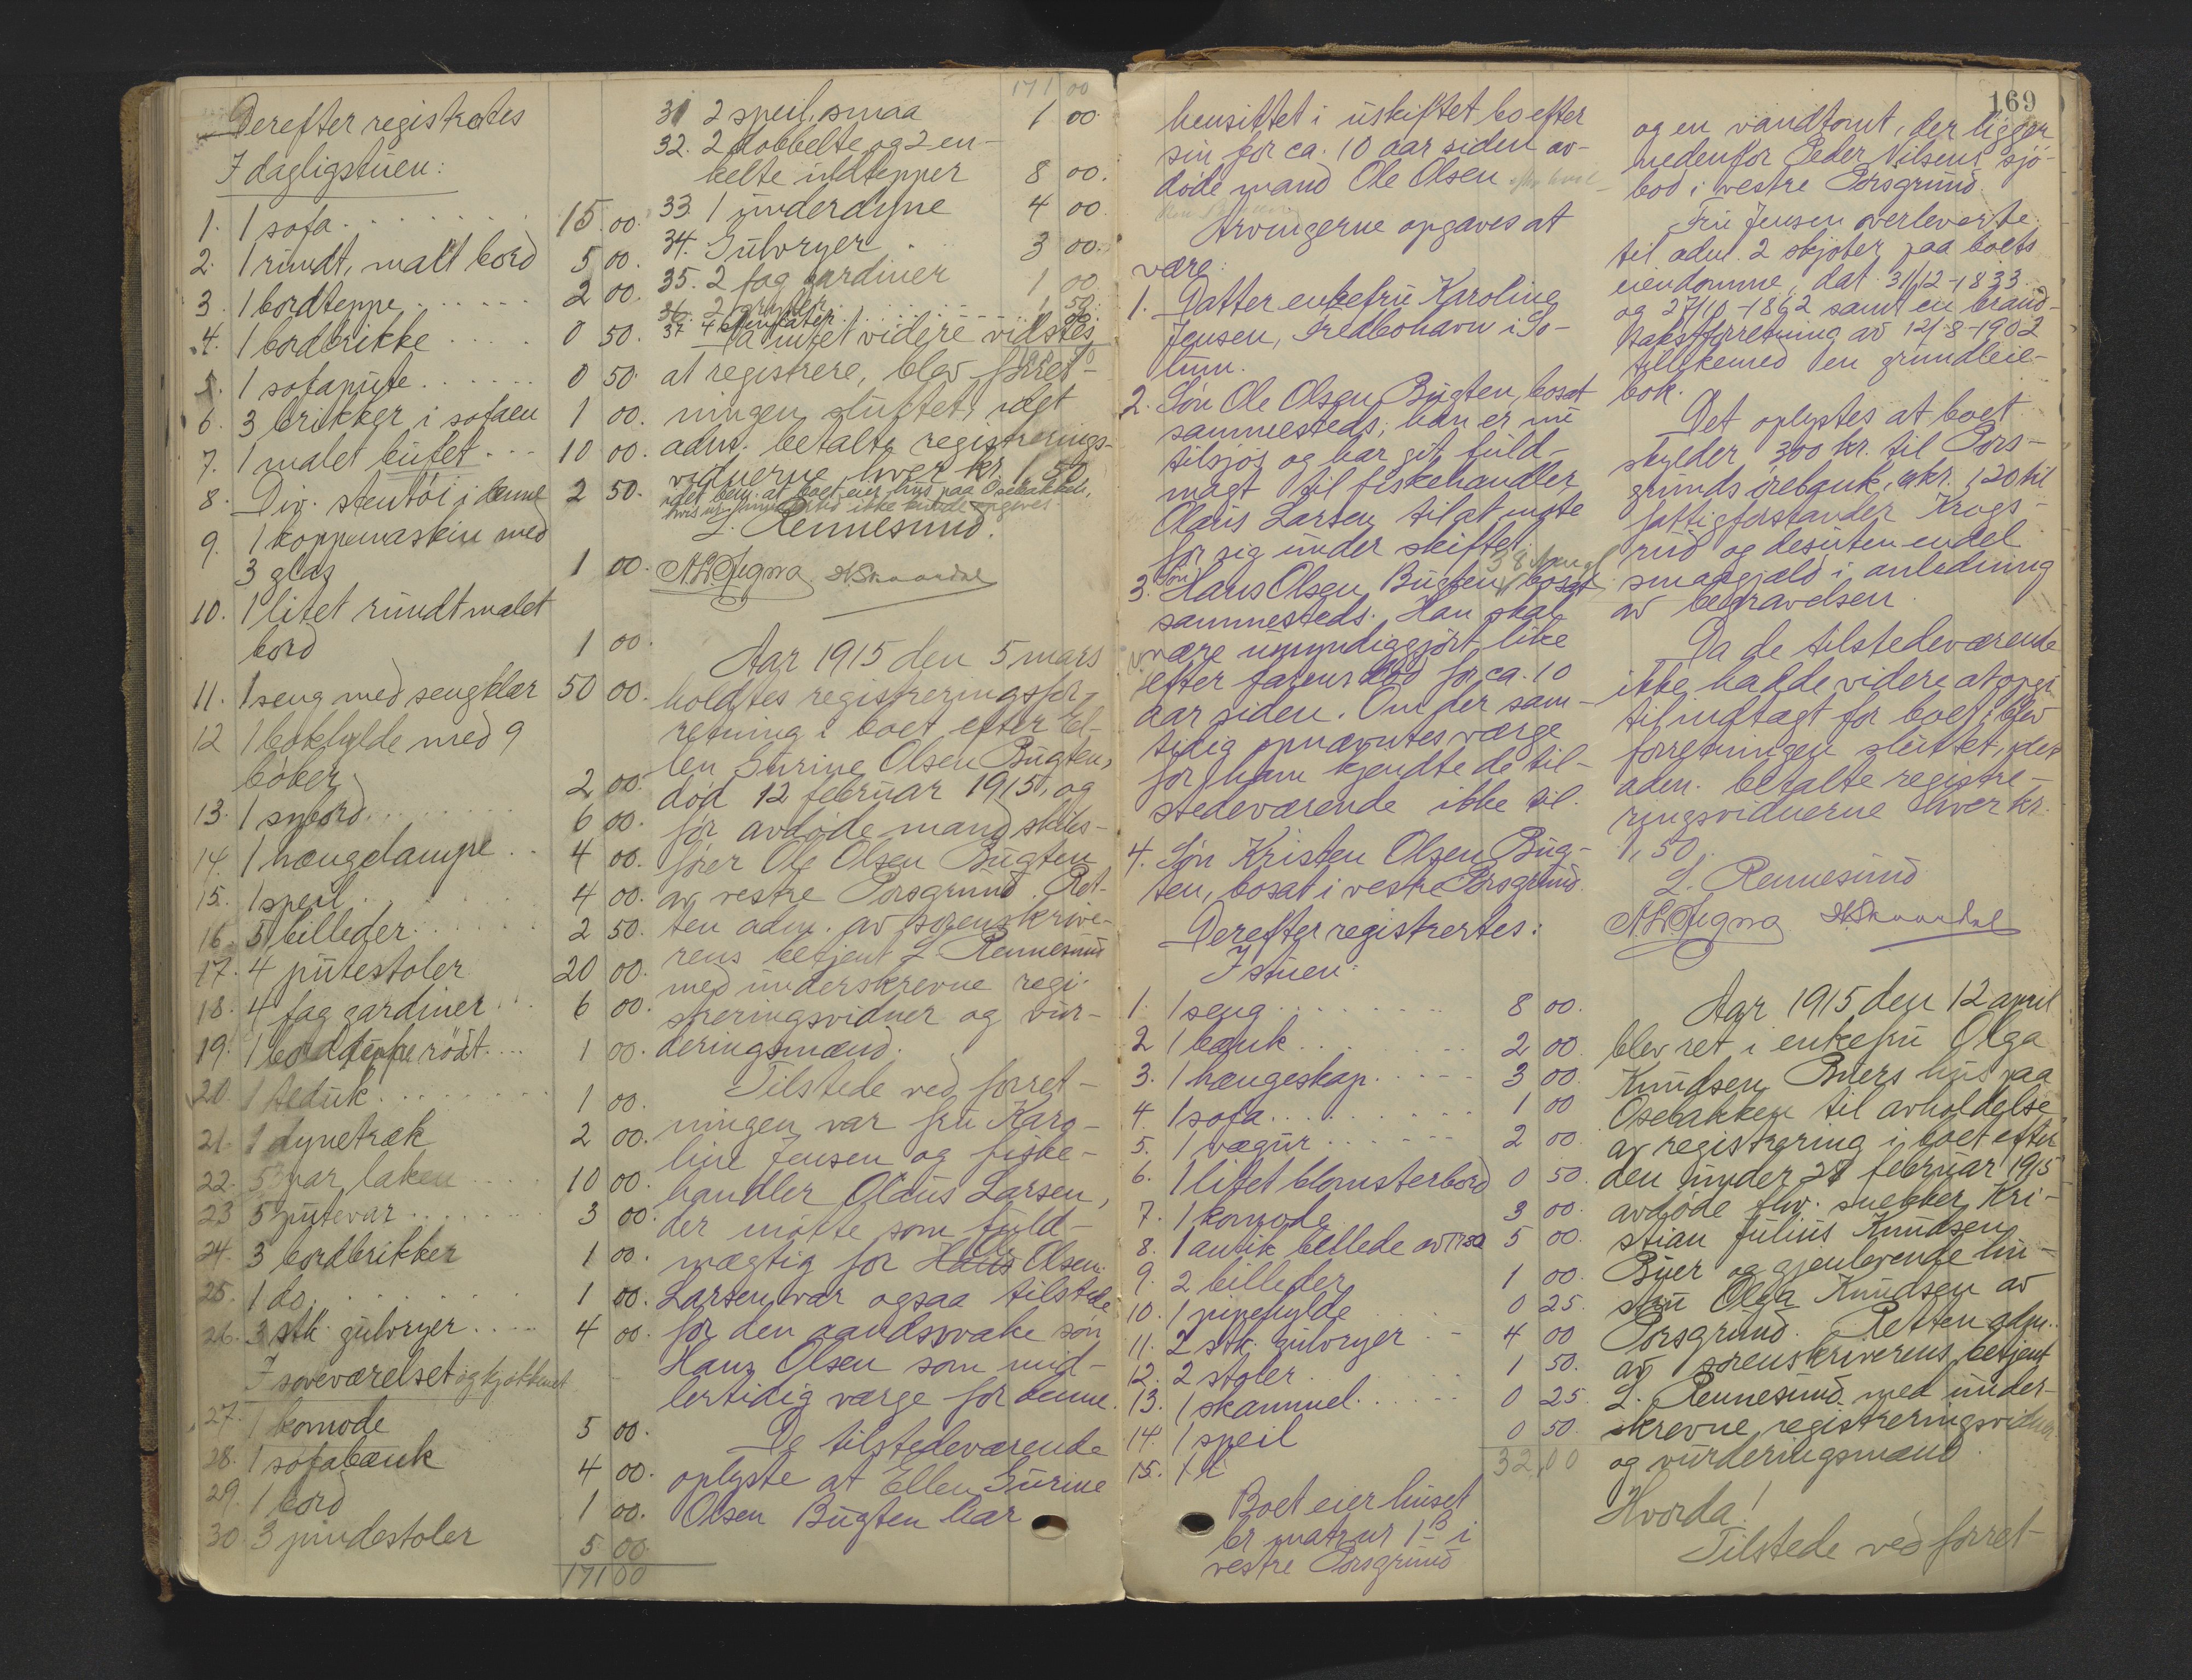 Derefter registrertes
I dagligstuen:
1. 1 sofa . . . 15 00.
2. 1 rundt, malt bord 5 00.
3. 1 bordteppe . . . 2 00.
4. 1 bordbrikke . . . 0 50.
5. 1 sofapute . . . 0 50.
6. 3 brikker i sofaen 1 00.
7. 1 malet bufet . . . 10 00.
8. Div. stentöi i denne 2 50.
9. 1 koppemaskin med
3 glas 1 00.
10. 1 litet rundt malet
bord 1 00.
11. 1 seng med sengklær 50 00.
12 1 bokhylde med 9
böker 2 00.
13. 1 sybord . . . 6 00.
14. 1 hængelampe . . 4 00.
15. 1 speil . . . 4 00.
16. 5 billeder . . . 2 50.
17. 4 putestoler 20 00.
18. 4 fag gardiner . . . 6 00.
19. 1 bordteppe rödt . . . 1 00.
20. 1 teduk . . . 1 00.
21. 1 dynetræk 2 00.
22. 5 par laken . . . 10 00.
23 5 putevar . . . 3 00.
24. 3 bordbrikker 1 00.
25. 1 do. . . . 1 00.
26. 3 stk. gulvryer . . . 4 00.
I soveværelset og kjøkkenet
27. 1 komode 5 00.
28. 1 sofabænk 4 00.
29. 1 bord 1 00.
30. 3 pindestoler 5 00.
171 00
171 00
31 2 speil, smaa 1 00.
32. 2 dobbelte og 2 en-
kelte uldtepper 8 00.
33. 1 underdyne 4 00
34. Gulvryer . 3 00.
35. 2 fag gardiner 1 00.
36. 2 gryder . . . 1 50.
37 4 stenfater . . .
Da intet videre vidstes
at registrere, blev forret-
ningen sluttet, idet
adm. betalte registrerings-
vidnerne hver kr. 1,50
idet bem. at boet eier hus paa Osebakken,
hvis matr. ikke kunde opgives.
L. Rennesund.
Aar 1915 den 5 mars
holdtes registreringsfor-
retning i boet efter El-
len Surine Olsen Bugten,
död 12 februar 1915, og
för avdöde mand skibs-
förer Ole Olsen Bugten
av vestre Porsgrund. Ret-
ten adm. av sorenskrive-
rens betjent L. Rennesund
med underskrevne regi-
streringsvidner og vur-
deringsmænd.
Tilstede ved forret-
ningen var fru Karo-
line Jensen og fiske-
handler Olaus Larsen,
der mötte som fuld-
mægtig for Hans Olsen.
Larsen var ogsaa tilstede
for den aandssvake sön
Hans Olsen som mid-
lertidig værge for denne.
De tilstedeværende
oplyste at Ellen Surine
Olsen Bugten har
169
hensittet i uskiftet bo efter
sin for ca. 10 aar siden av-
döde mand Ole Olsen
Arvingerne opgaves at
være:
1. Datter enkefru Karoline
Jensen, Fredbohavn i So-
lum.
2. Sön Ole Olsen Bugten, bosat
sammesteds; han er nu
tilsjös og har git fuld-
magt til fiskehandler
Olaus Larsen til at möte
for sig under skiftet.
3. Sön Hans Olsen Bugten, bosat
sammesteds. Han skal
være umyndiggjort like
efter farens död for ca. 10
aar siden. Om der sam-
tidig opnævntes værge
for ham kjendte de til-
stedeværende ikke til.
4. Sön Kristen Olsen Bug-
ten, bosat i vestre Porsgrund.
Derefter registrertes:
I stuen:
1. 1 seng . . . 8 00.
2 1 bænk . . . 2 00
3. 1 hængeskap . . . 3 00.
4. 1 sofa . . . 1 00
5. 1 vægur . . . 2 00.
6. 1 litet blomsterbord 0 50.
7. 1 komode 3 00.
8. 1 antik billede av 5 00.
9. 2 billeder 1 00.
10. 1 pipehylde 0 25.
11. 2 stk. gulvryer . . 4 00
12. 2 stoler . . . 1 50.
13. 1 skammel . . . 0 25
14. 1 speil 0 50.
15. 32,00
Boet eier huset
br matr nr 1 B i
vestre Porsgrund
og en vandtomt, der ligger
nedenfor Peder Nilsens sjö-
bod i vestre Porsgrund.
Fru Jensen overleverte
til adm. 2 skjöter paa boets
eiendomme, dat. 31/12-1833
og 27/10-1862 samt en brand-
takstforretning av 12/8-1902
tillikemed en grundleie-
bok.
Det oplystes at boet
skylder 300 kr. til Pors-
grunds örebank, kr. 120 til
fattigforstander Krogs-
rud og desuten endel
smaagjæld i anledning
av begravelsen.
Da de tilstedeværende
ikke hadde videre at opgi
til indtægt for boet, blev
forretningen sluttet, idet
adm. betalte registre-
ringsvidnerne hver kr.
1,50.
L. Rennesund
Aar 1915 den 12 april
blev ret i enkefru Olga
Knudsen Buers hus paa
Osebakken til avholdelse
av registrering i boet efter
den under 28 februar 1915
avdöde fhv. snekker Kri-
stian Julius Knudsen
Buer og gjenlevende hu-
stru Olga Knudsen av
Porsgrund. Retten adm.
av sorenskriverens betjent
L. Rennesund med under-
skrevne registreringsvidner
og vurderingsmænd.
Hvorda!
Tilstede ved forret-